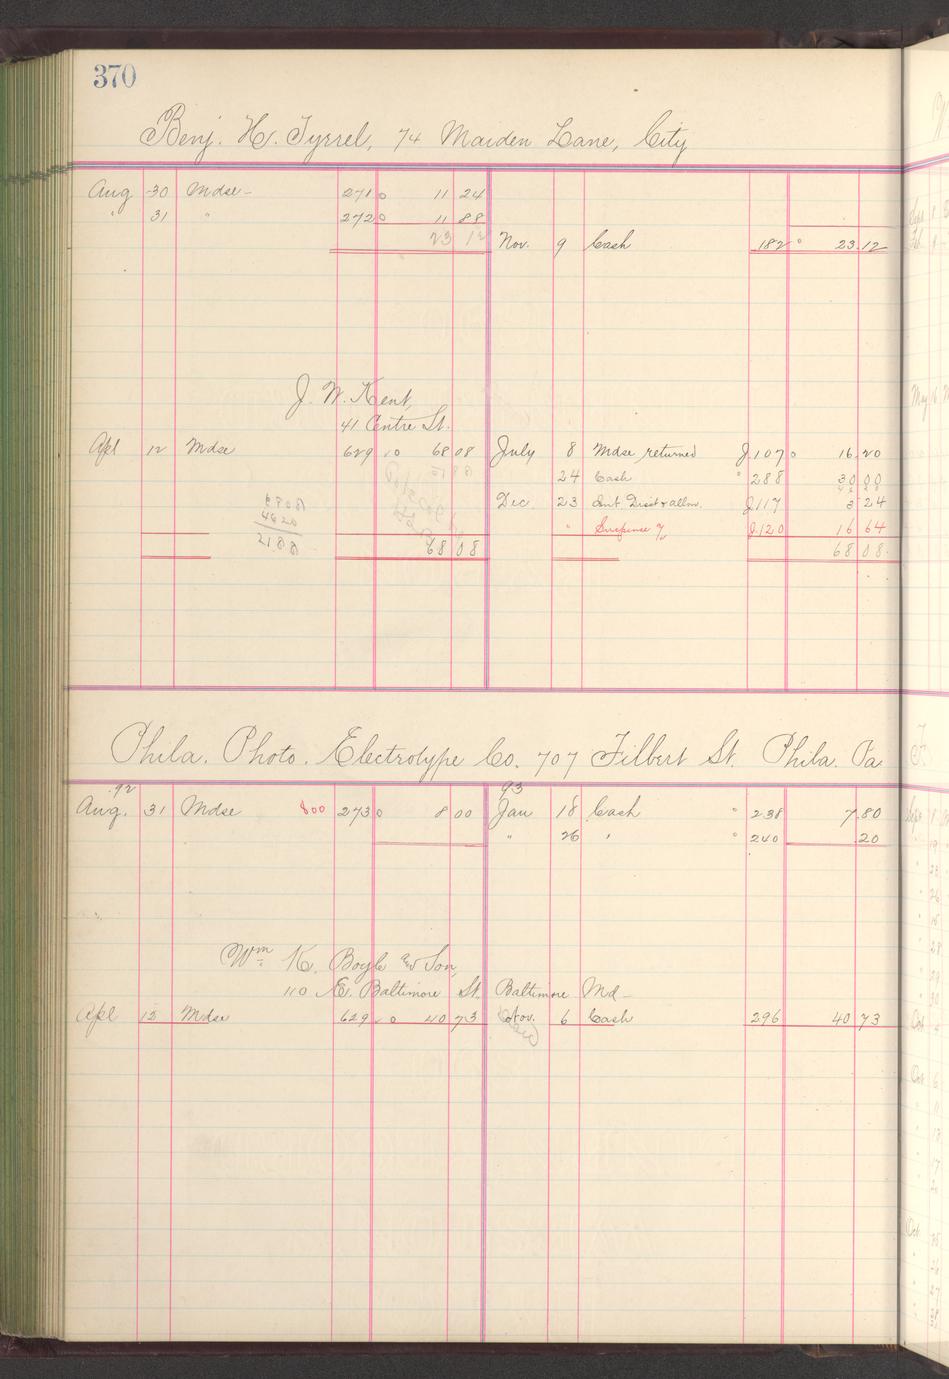 370
Benj. H. Tyrrel, 74 Maiden Lane, City
Aug 30 Mdse 271 0 11 24
" 31 " 272 0 11 88
23 12 Nov. 9 Cash 182 " 23.12
J. W. Kent,
41 Centre St.
Apl 12 Mdse 629 0 68 08 July 8 Mdse returned J107 0 16.20
24 Cash " 288 30 00
Dec 23 Int. Disct & allow. J117 5 24
" Suspense J120 16 64
68 08 68 08
4620
2188
Phila. Photo. Electrotype Co. 707 Filbert St. Phila. Pa
.92 93
Aug. 31 Mdse 800 273 0 8 00 Jan 18 Cash " 238 7.80
" 26 " " 240 .20
Wm K. Boyle & Son,
110 E. Baltimore St. Baltimore Md
Apl 13 Mdse 629 0 40 73 Nov. 6 Cash 296 40 73